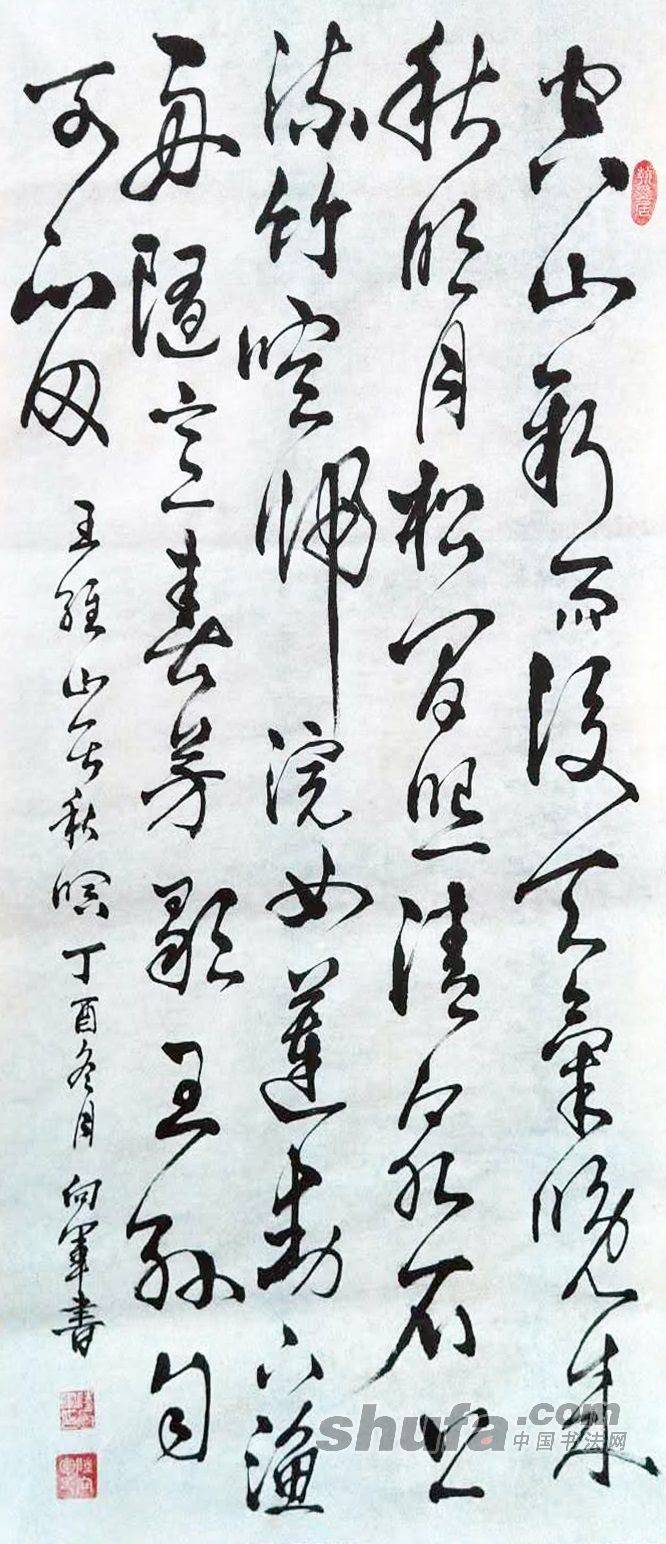 空山新雨後天氣晚來
秋明月松間照清泉石上
流竹喧歸浣女蓮動下漁
舟隨意春芳歇王孫自
可留
王維山居秋暝丁酉冬月向軍書
shufa.com
中国书法网